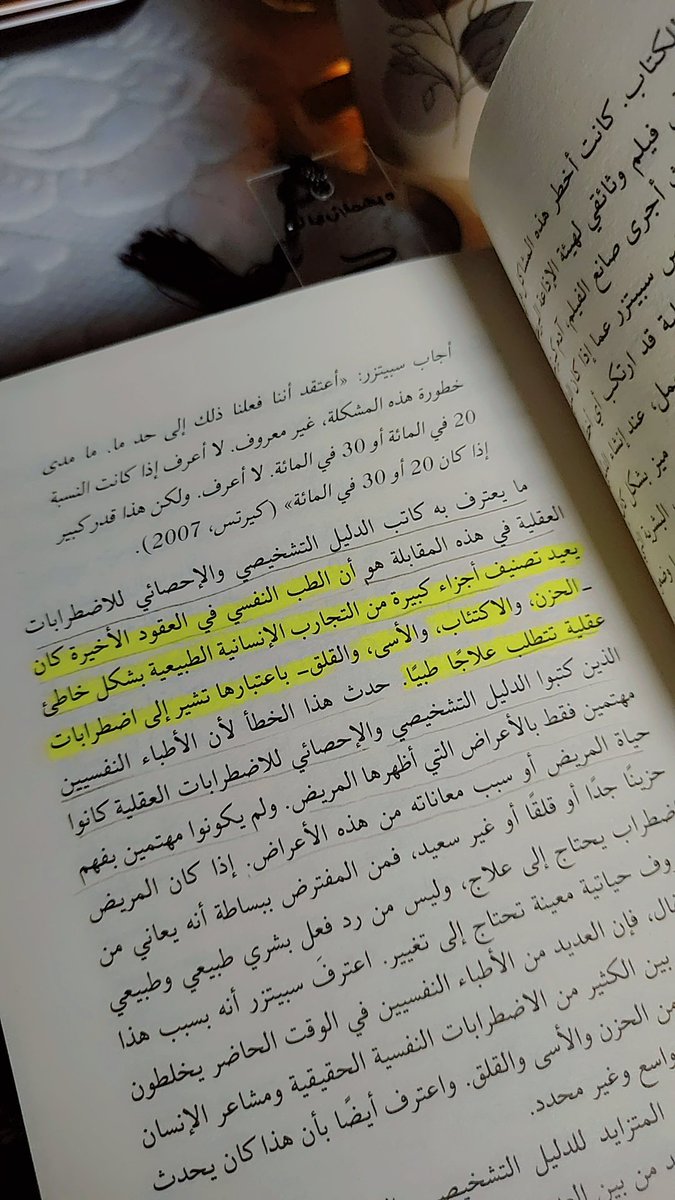 الكتاب. كانت أخطر هذه
فيلم وثائقي لهيئة الإذاعة
أجرى صانع الفيلم، آدم
سبيتزر عما إذا كان
قد ارتكب أي
عند إنشاء
ميز بشكل
البشرية
أجاب سبيتزر: «أعتقد أننا فعلنا ذلك إلى حد ما. ما مدى
خطورة هذه المشكلة، غير معروف. لا أعرف إذا كانت النسبة
20 في المائة أو 30 في المائة. لا أعرف. ولكن هذا قدر كبير
إذا كان 20 أو 30 في المائة» (كيرتس، 2007).
ما يعترف به كاتب الدليل التشخيصي والإحصائي للاضطرابات
العقلية في هذه المقابلة هو أن الطب النفسي في العقود الأخيرة كان
يعيد تصنيف أجزاء كبيرة من التجارب الإنسانية الطبيعية بشكل خاطئ
-الحزن، والاكتئاب، والأسى، والقلق- باعتبارها تشير إلى اضطرابات
عقلية تتطلب علاجًا طبيًا. حدث هذا الخطأ لأن الأطباء النفسيين
الذين كتبوا الدليل التشخيصي والإحصائي للاضطرابات العقلية كانوا
مهتمين فقط بالأعراض التي أظهرها المريض. ولم يكونوا مهتمين بفهم
حياة المريض أو سبب معاناته من هذه الأعراض. إذا كان المريض
حزينًا جدًا أو قلقًا أو غير سعيد، فمن المفترض ببساطة أنه يعاني من
اضطراب يحتاج إلى علاج، وليس من رد فعل بشري طبيعي وطبيعي
حياتية معينة تحتاج إلى تغيير. اعترفَ سبيتزر أنه بسبب هذا
فإن العديد من الأطباء النفسيين في الوقت الحاضر يخلطون
بين الكثير من الاضطرابات النفسية الحقيقية ومشاعر الإنسان
من الحزن والأسى والقلق. واعترف أيضًا بأن هذا كان يحدث
واسع وغير محدد.
المتزايد للدليل التشخيصي
من بين